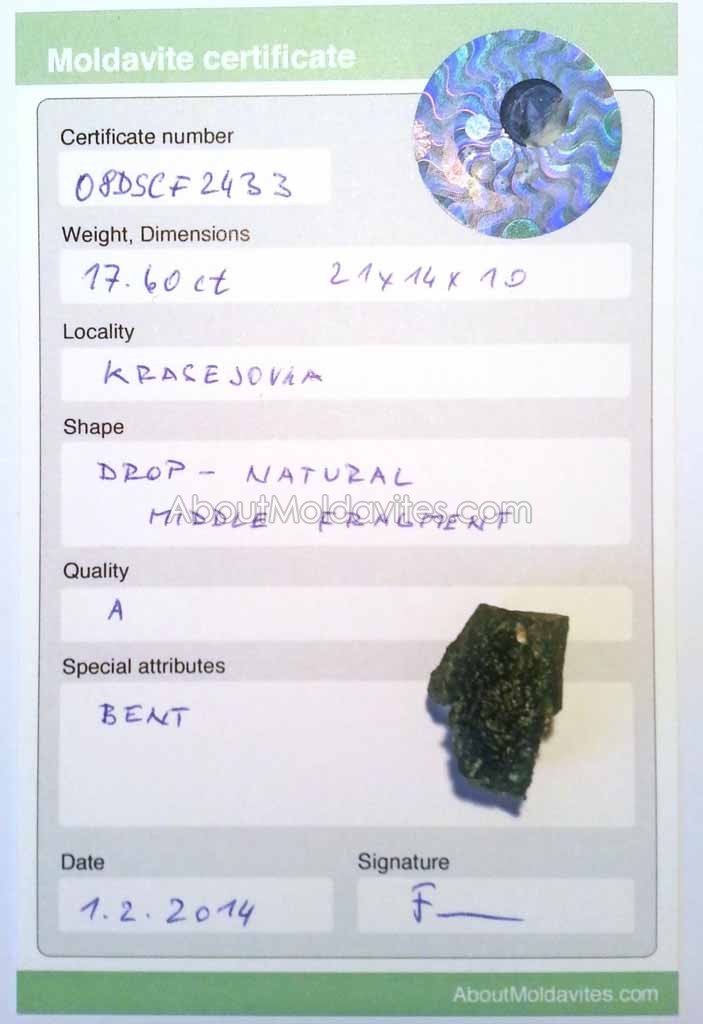 Moldavite certificate
Certificate number
08DSCF2433
Weight, Dimensions
17.60 ct 21 x 14 x 10
Locality
KRASEJOVKA
Shape
DROP - NATURAL
MIDDLE FRAGMENT
AboutMoldavites.com
Quality
A
Special attributes
BENT
Date Signature
1.2.2014
AboutMoldavites.com